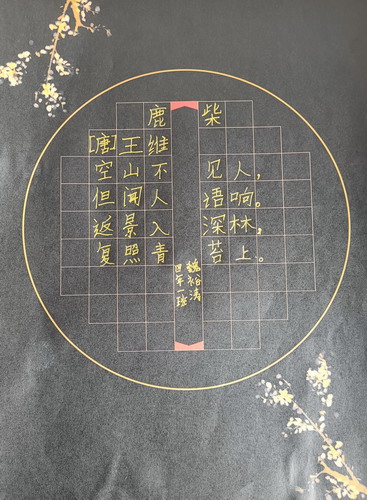 鹿柴
[唐]王维
空山不见人，
但闻人语响。
返景入深林，
复照青苔上。
魏裕涛
四年一班